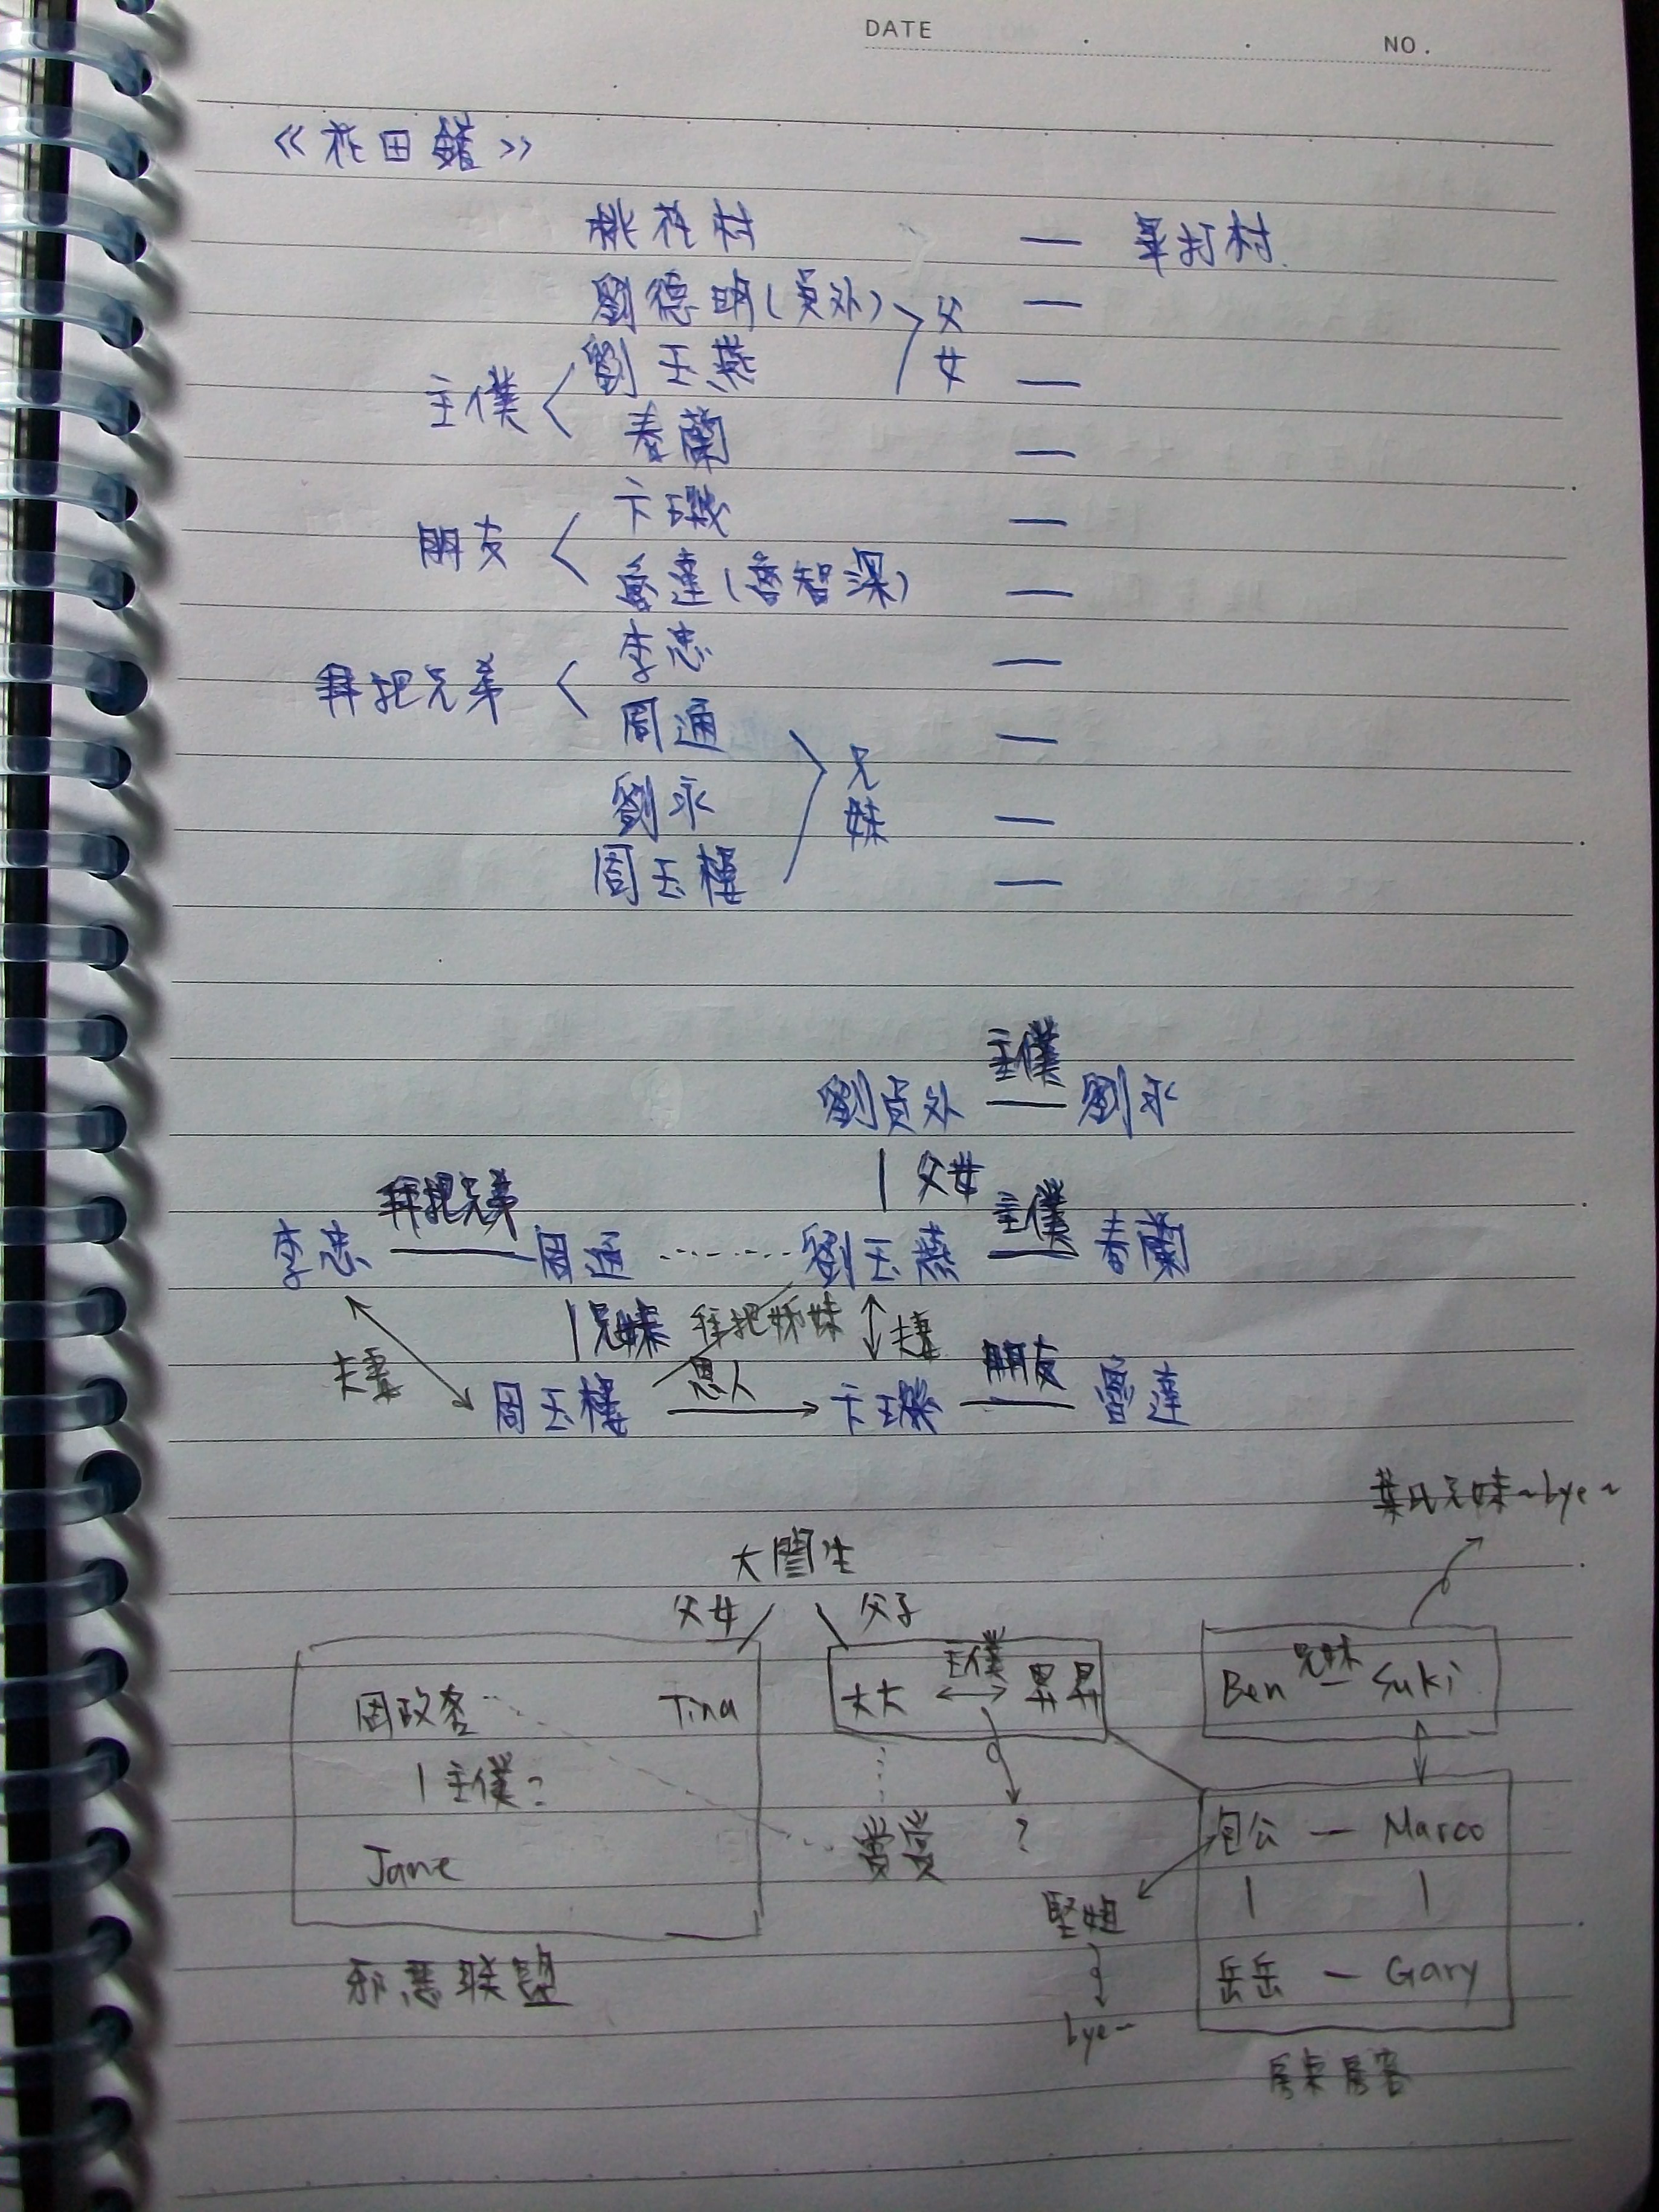 DATE . . NO.
《花田錯》
桃花村 — 畢打村
劉德明(員外) 父 —
主僕 劉玉燕 女 —
春蘭 —
朋友 卞璣 —
魯達(魯智深) —
拜把兄弟 李忠 —
周通 兄 —
劉永 妹 —
周玉樓 —
主僕
劉員外 — 劉永
父女
拜把兄弟 主僕
李忠 — 周通 ------ 劉玉燕 — 春蘭
兄妹 拜把姊妹 夫妻
夫妻 恩人 朋友
周玉樓 → 卞璣 — 魯達
葉氏兄妹~bye~
父女 父子
主僕 兄妹
大大 昇昇 Ben — Suki
Tina
主僕?
愛愛 ? 包公 — Marco
Jane
bye~ 岳岳 — Gary
邪惡联盟
房東房客